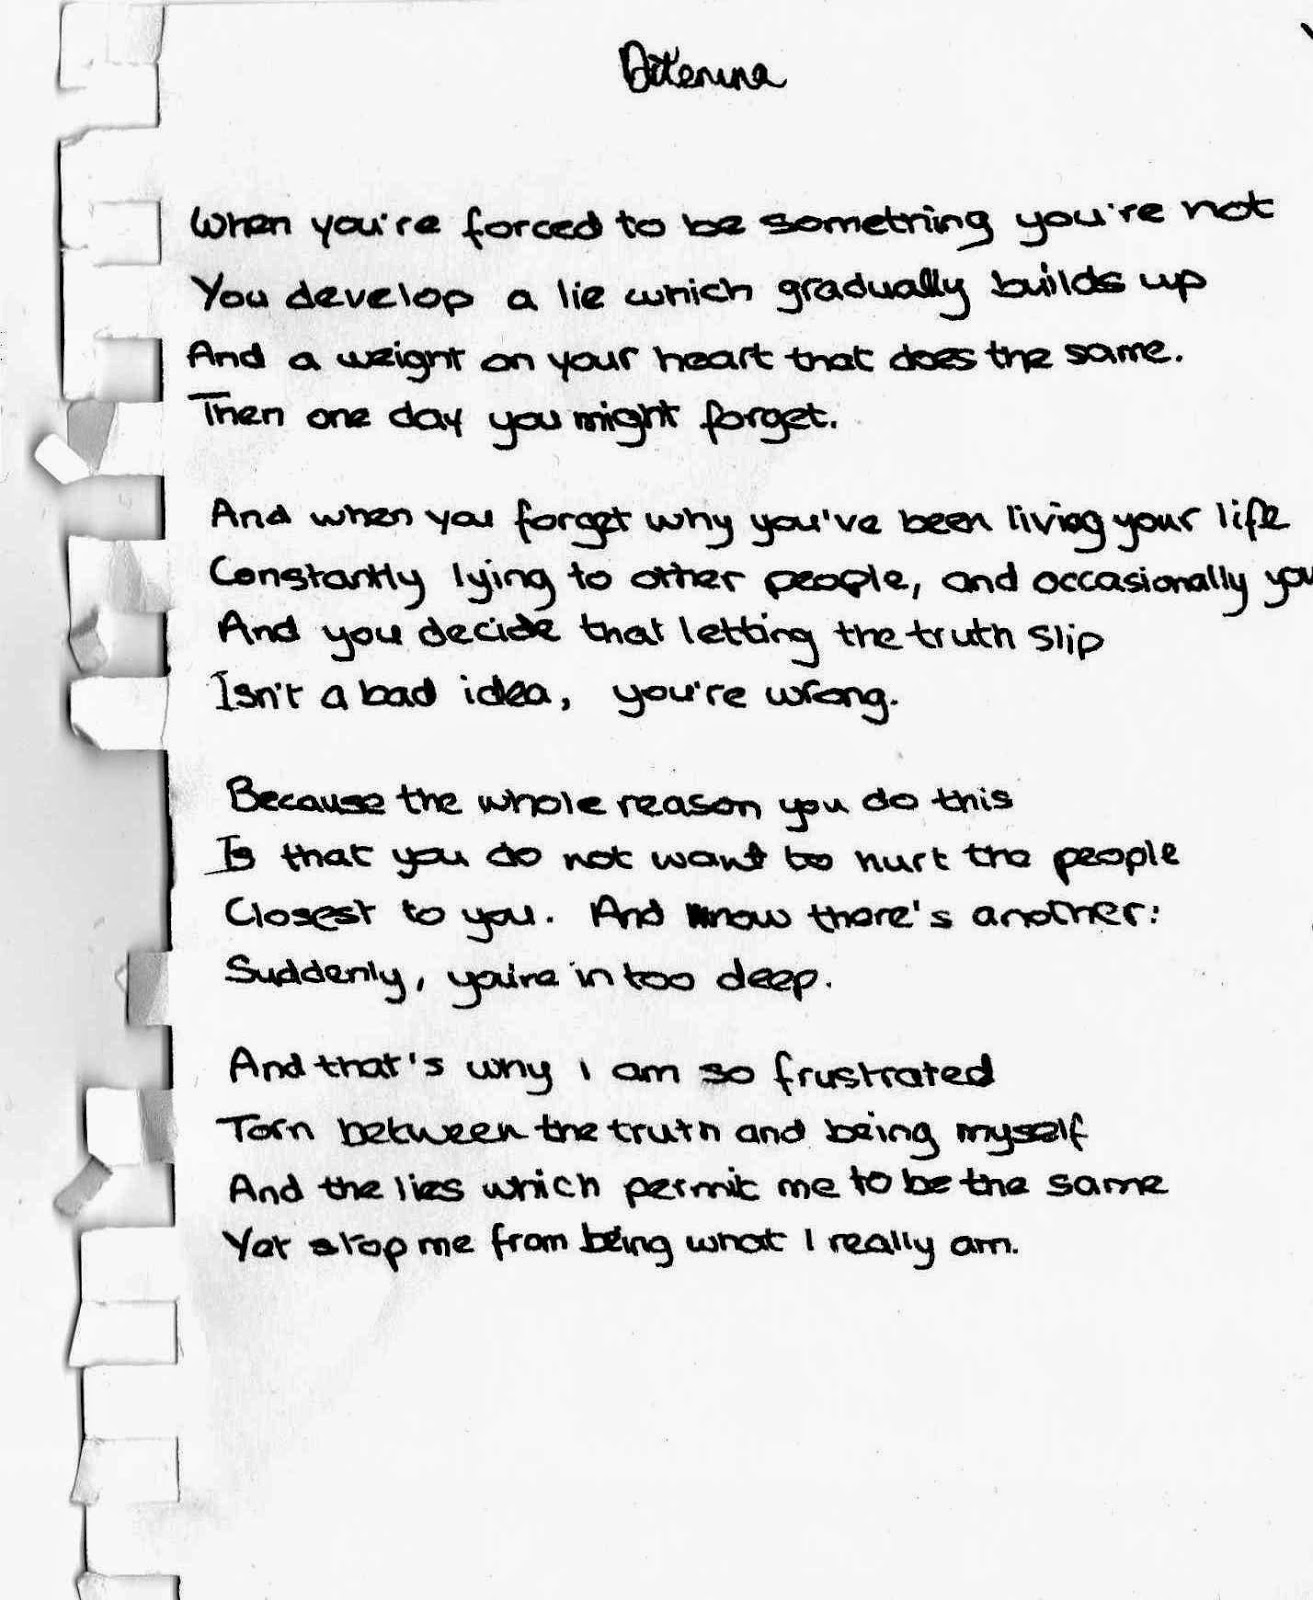 When you're forced to be something you're not
You develop a lie which gradually builds up
And a weight on your heart that does the same.
Then one day you might forget.
And when you forget why you've been living your life
Constantly lying to other people, and occasionally you
And you decide that letting the truth slip
Isn't a bad idea, you're wrong.
Because the whole reason you do this
Is that you do not want to hurt the people
Closest to you. And now there's another:
Suddenly, you're in too deep.
And that's why I am so frustrated
Torn between the truth and being myself
And the lies which permit me to be the same
Yet stop me from being what I really am.